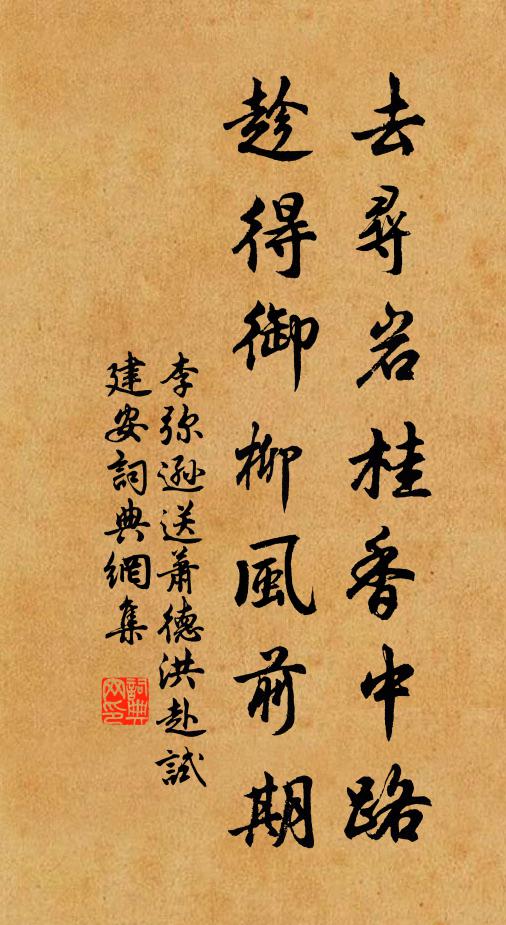 去尋岩桂香中路
趁得御柳風前期
李弥遜送蕭德洪赴試
建安詞典網集
詞典網印